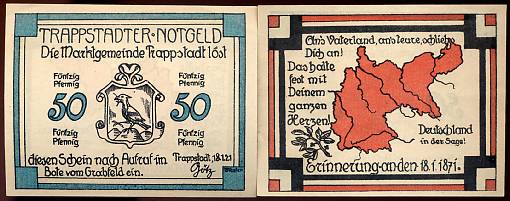 TRAPPSTADTER · NOTGELD
Die Marktgemeinde Trappstadt löst
Fünfzig
Pfennig
50
Fünfzig
Pfennig
Fünfzig
Pfennig
50
Fünfzig
Pfennig
diesen Schein nach Aufruf im
Bote vom Grabfeld ein.
Trappstadt, 18.1.21
Götz
An's Vaterland, an's teure, schließ
Dich an!
Das halte
fest mit
Deinem
ganzen
Herzen!
Deutschland
in der Sage!
Erinnerung an den 18.1.1871.